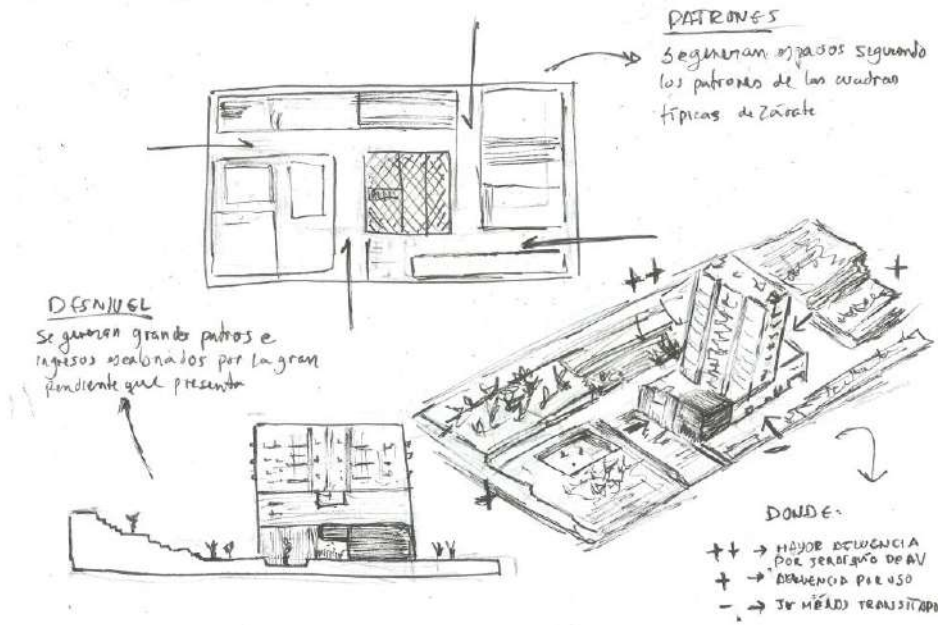 PATRONES
Se generan espacios siguiendo
los patrones de las cuadras
típicas de Zárate
DESNIVEL
Se generan grandes patios e
ingresos escalonados por la gran
pendiente que presenta
DONDE:
++ → MAYOR AFLUENCIA
POR JERARQUÍA DE AV
+ → AFLUENCIA POR USO
- → MENOS TRANSITADO
++
+
+
-